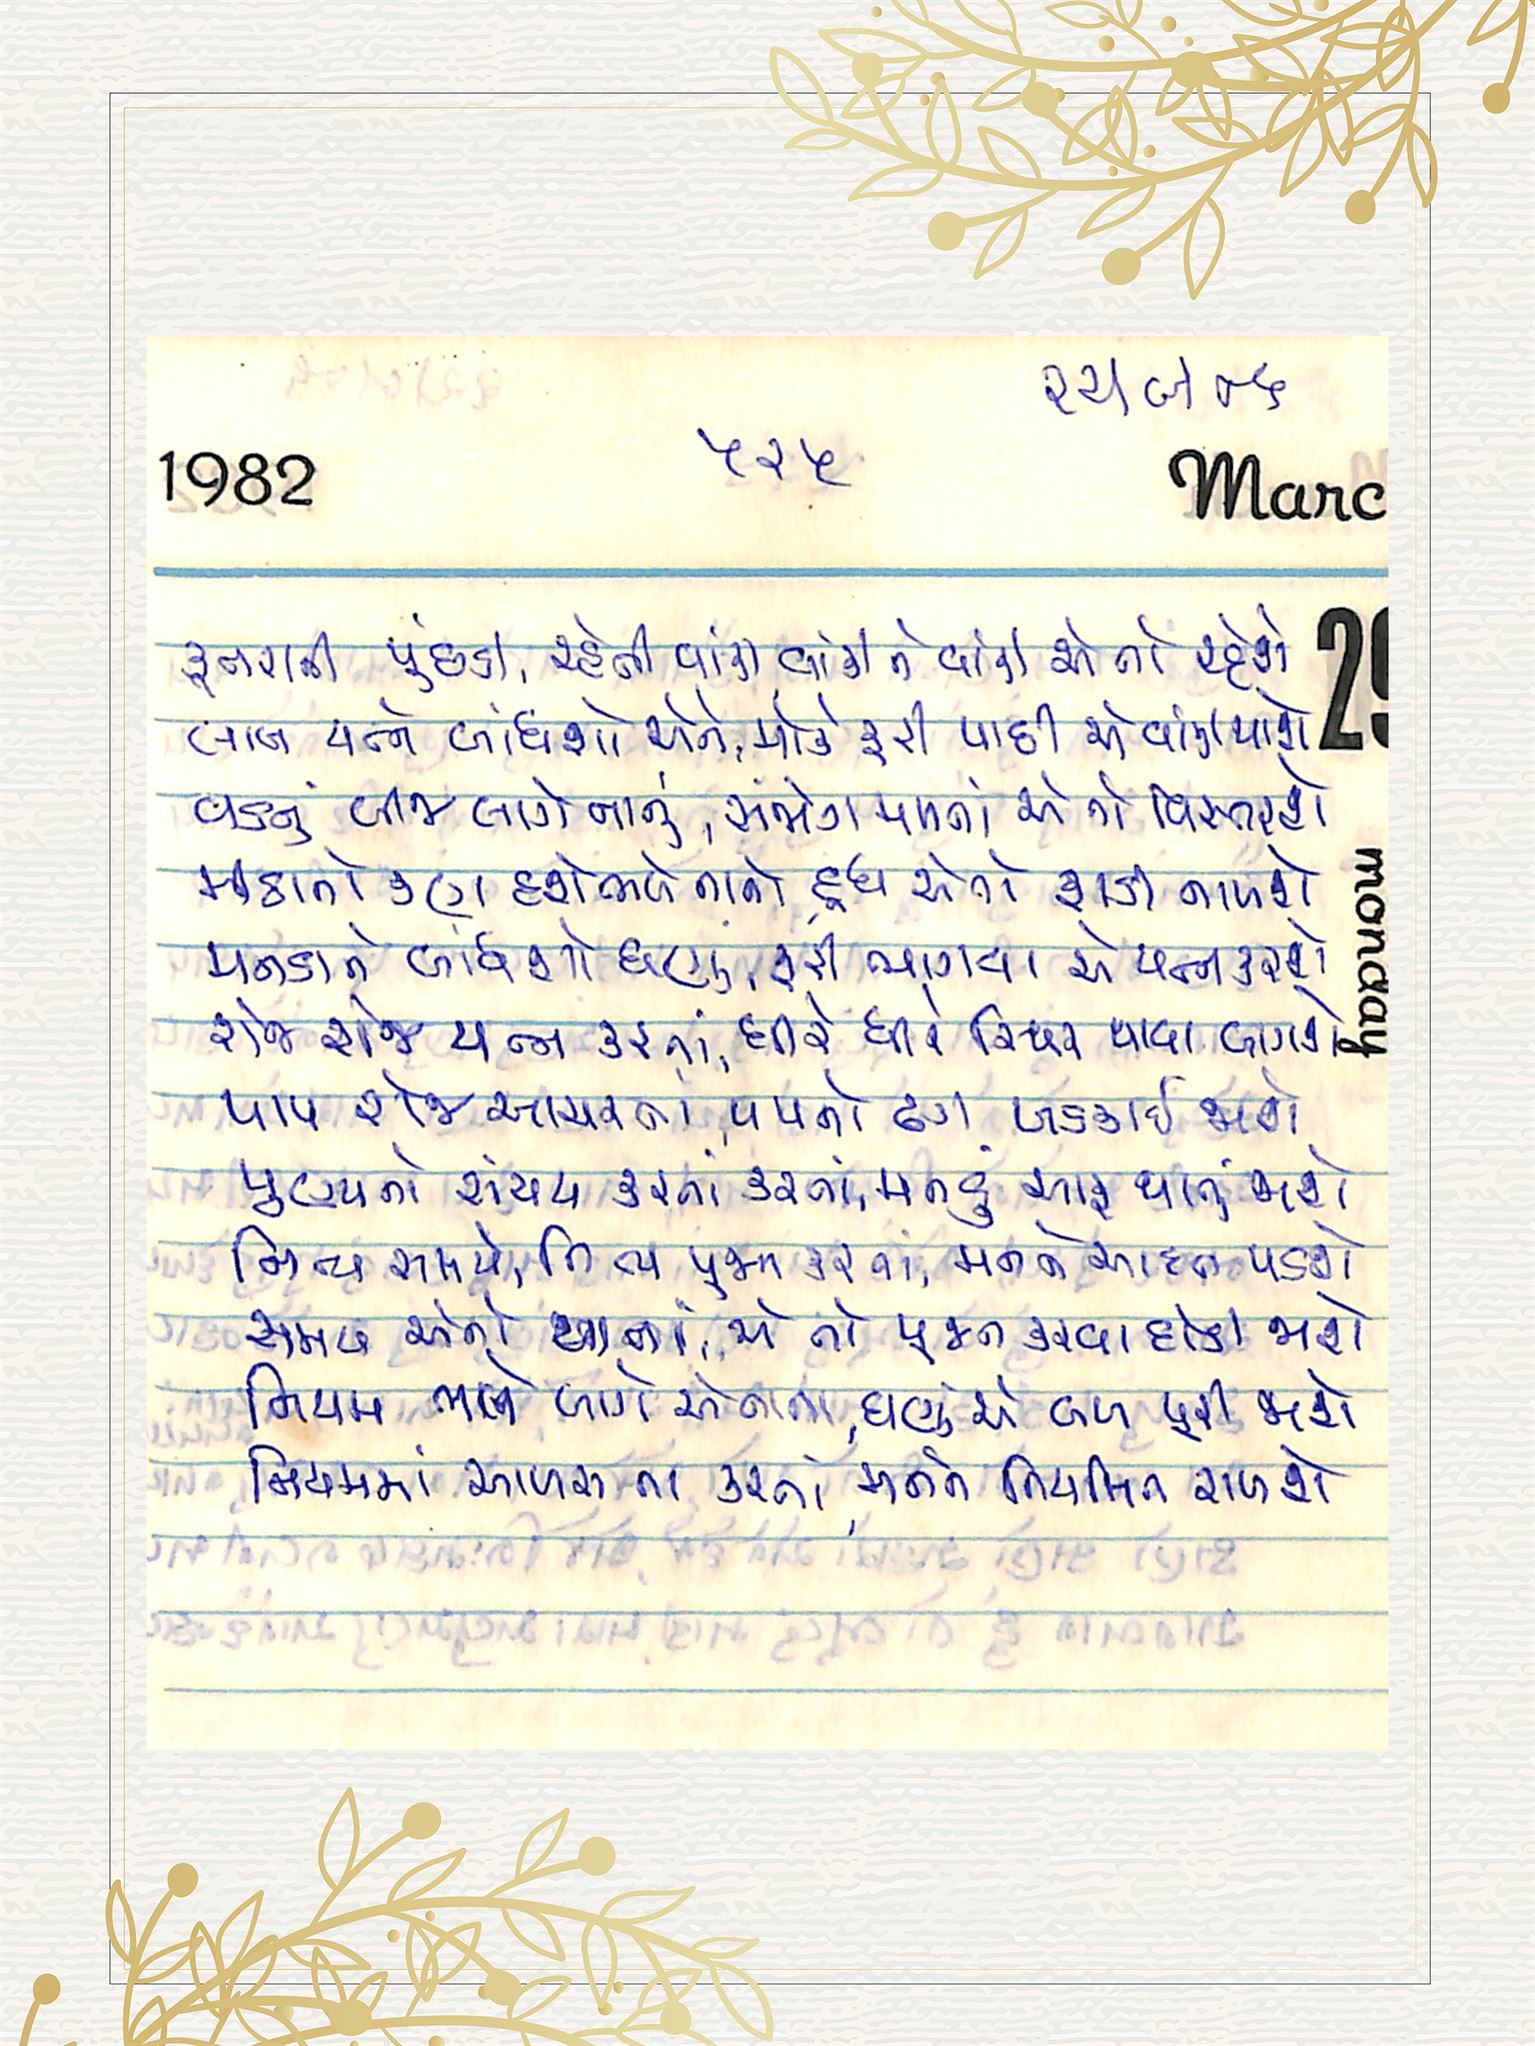 1982
૫૨૫
Marc
29
monday
કૂતરાની પૂંછડી, રહેતી વાંકી વાંકી ને વાંકી એ તો રહેશે
લાખ યત્ને બાંધશો એને, મોકે ફરી પાછી એ વાંકી થાશે
વડનું બીજ લાગે નાનું, સંજોગ મળતાં એ તો વિસ્તરશે
મીઠાનો કણ હશે ભલે નાનો, દૂધ એ તો ફાડી નાખશે
મનડાને બાંધશો ઘણું, ફરી ભાગવા એ યત્ન કરશે
રોજ રોજ યત્ન કરતાં, ધીરે ધીરે સ્થિર થાવા લાગશે
પાપ રોજ આચરતાં, પાપનો ઢગ ખડકાઈ જાશે
પુણ્યનો સંચય કરતાં કરતાં, મનડું સાફ થાતું જાશે
નિત્ય સમયે, નિત્ય પૂજન કરતાં, મનને આદત પડશે
સમય એનો થાતાં, એ તો પૂજન કરવા દોડી જાશે
નિયમ ભલે લાગે એ નાના, ઘણું એ બળ પૂરી જાશે
નિયમમાં આળસ ના કરતાં, મનને નિયમિત રાખશે